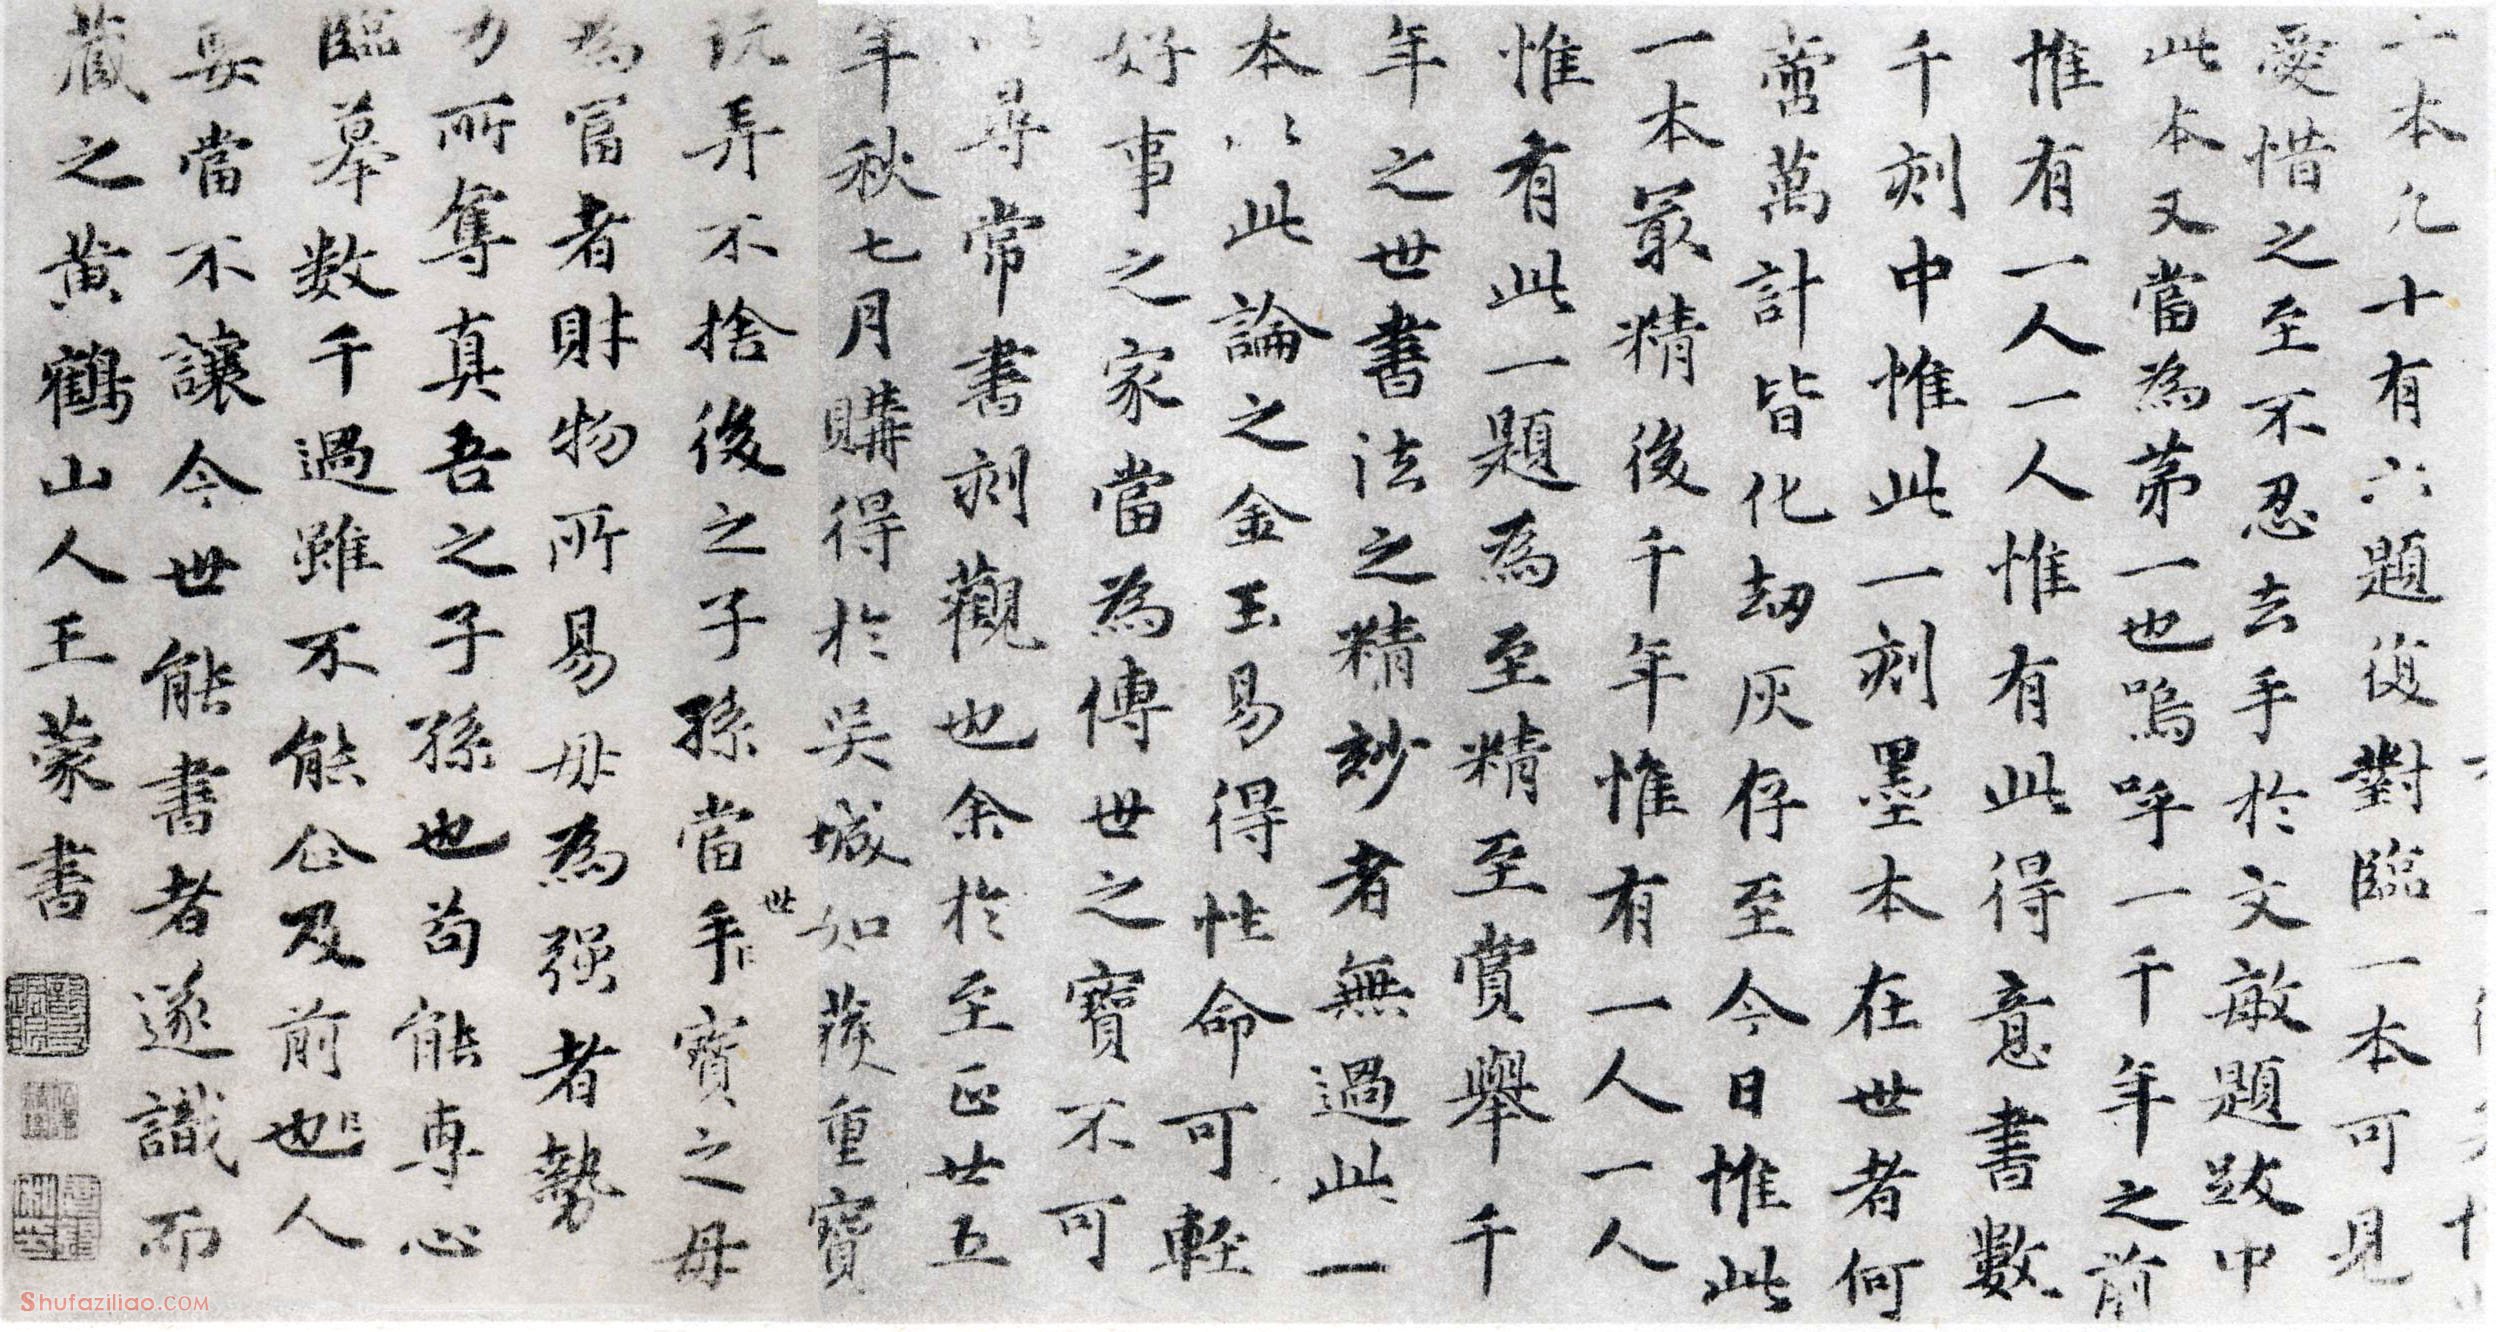 一本凡十有六題復對臨一本可見
愛惜之至不忍去手於文敏題跋中
此本又當為苐一也嗚呼一千年之前
惟有一人一人惟有此得意書數
千刻中惟此一刻墨本在世者何
啻萬計皆化劫灰存至今日惟此
一本㝡精後千年惟有一人一人
惟有此一題為至精至賞舉千
年之世書法之精妙者無過此一
本以此論之金玉易得性命可輕
好事之家當為傳世之寶不可
以尋常書刻觀也余於至正廿五
年秋七月購得於吳城如蔟重寶
玩弄不捨後之子孫當世手寶之毋
為富者財物所易毋為强者勢
力所奪真吾之子孫也茍能専心
臨摹数千過雖不能企及前也人
要當不讓今世能書者遂識而
藏之黃鶴山人王蒙書
Shufaziliao.COM